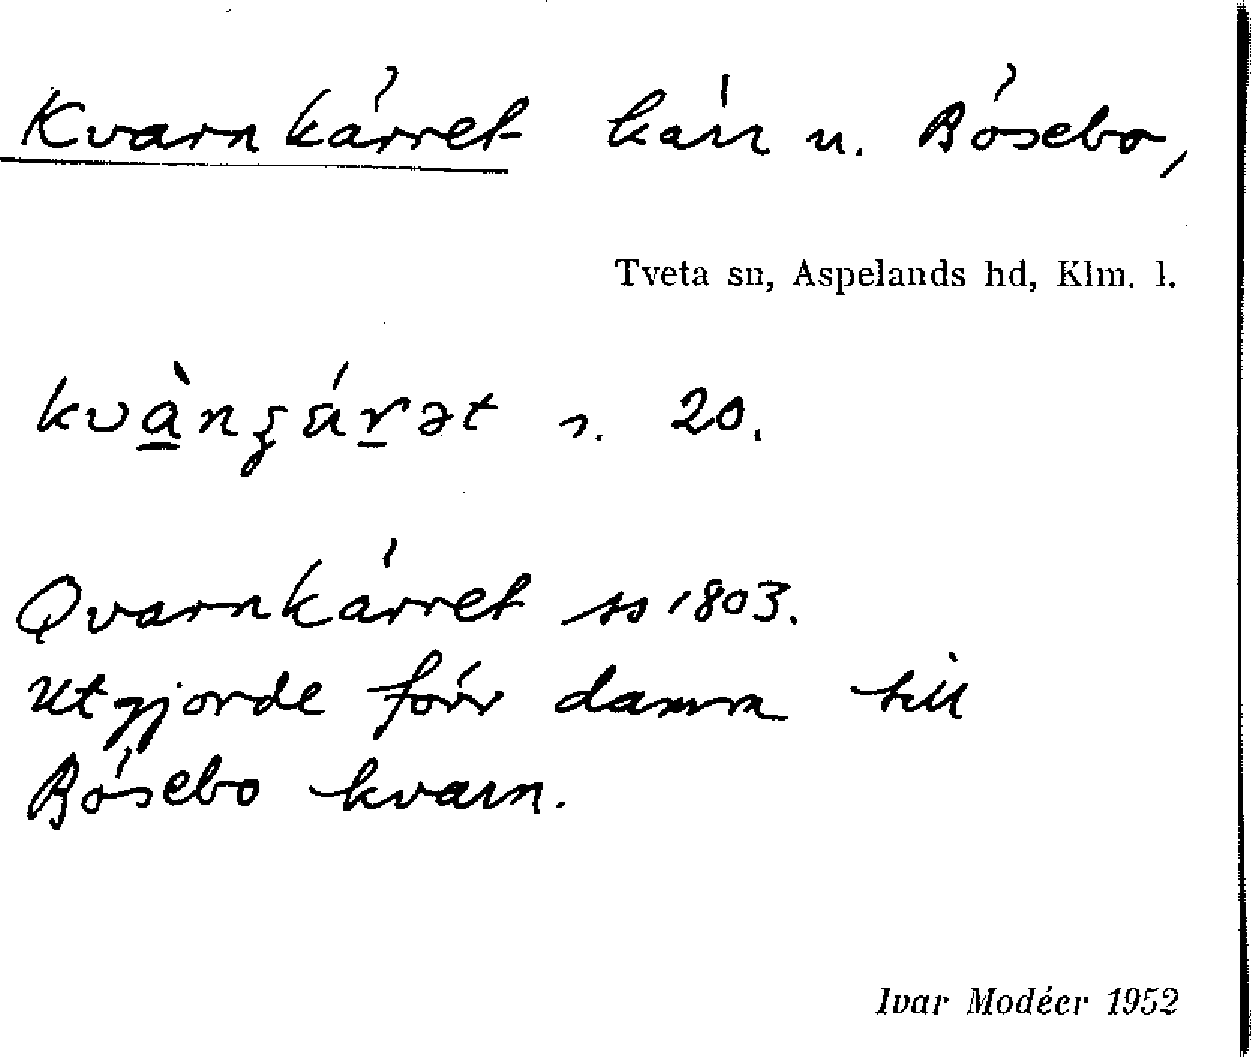 Kvarnkärret kärr u. Bösebo,
Tveta sn, Aspelands hd, Klm. l.
20.
Qvarnkärret ss 1803.
Utgjorde förr damm till
Bösebo kvarn.
Ivar Modéer 1952